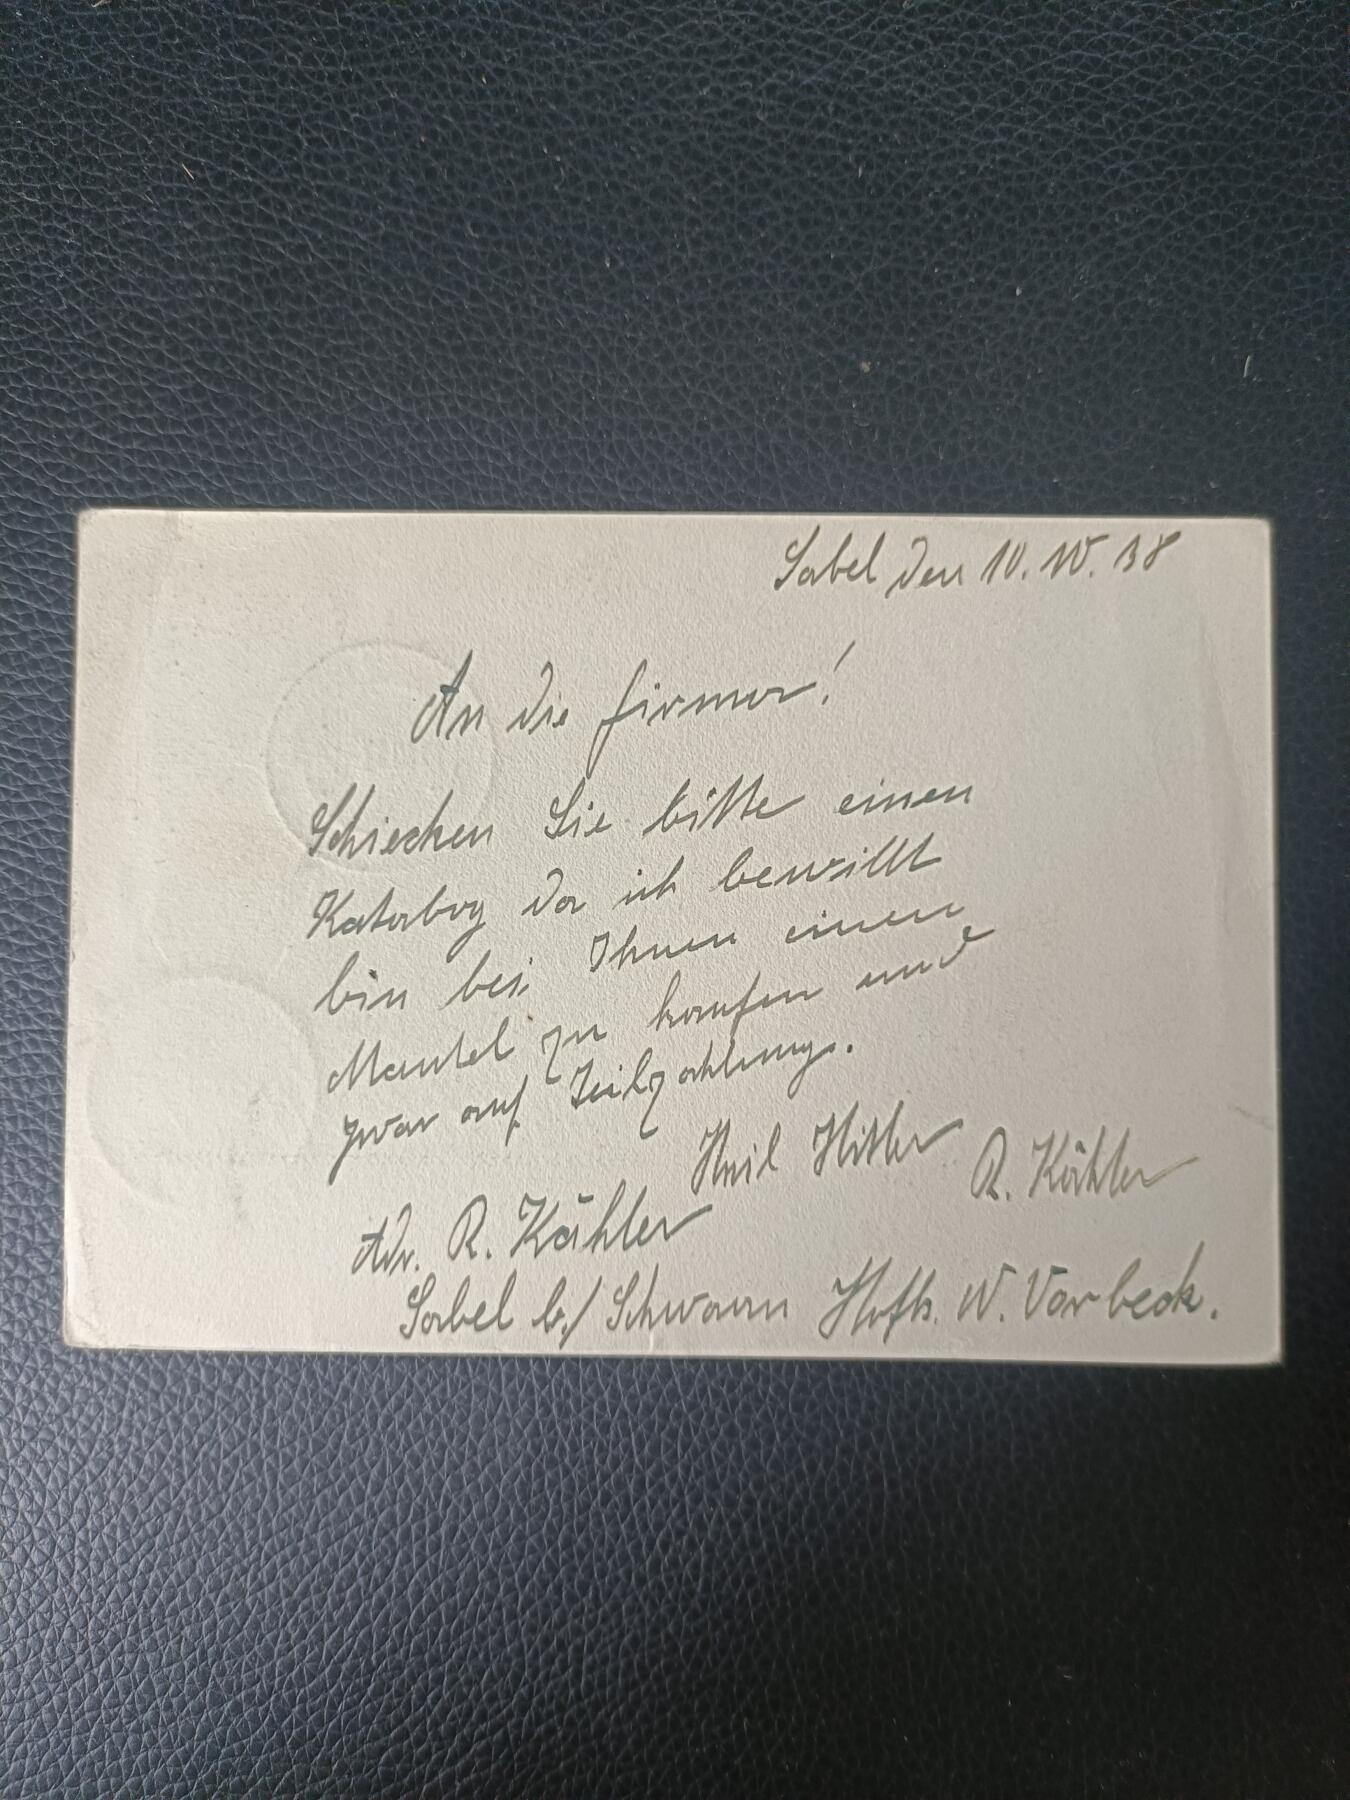 Sabel den 10. IV. 38
An die Firma!
Schiecken Sie bitte einen
Katerbog da ich bewillt
bin bei Ihnen einen
Mantel zu kaufen und
zwar auf Teilzahlung.
Heil Hitler R. Kähler
Adr. R. Kähler
Sabel b./ Schwaan Hofb. W. Vorbeck.